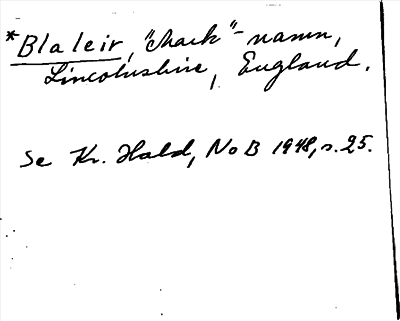 *Blaleir, "Mark"-namn,
Lincolnshire, England.
Se Kr. Hald, NoB 1948, s. 25.